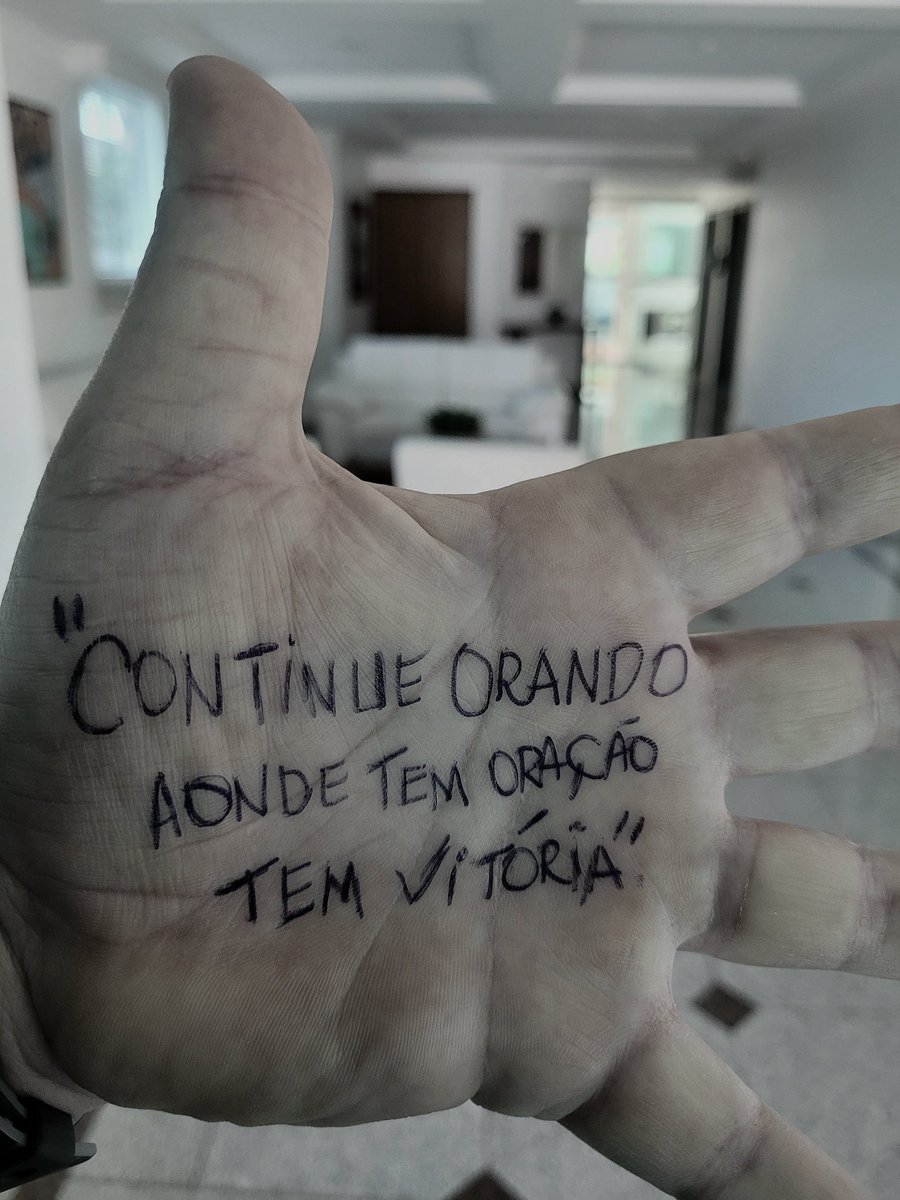 "CONTINUE ORANDO
AONDE TEM ORAÇÃO
TEM VITÓRIA".